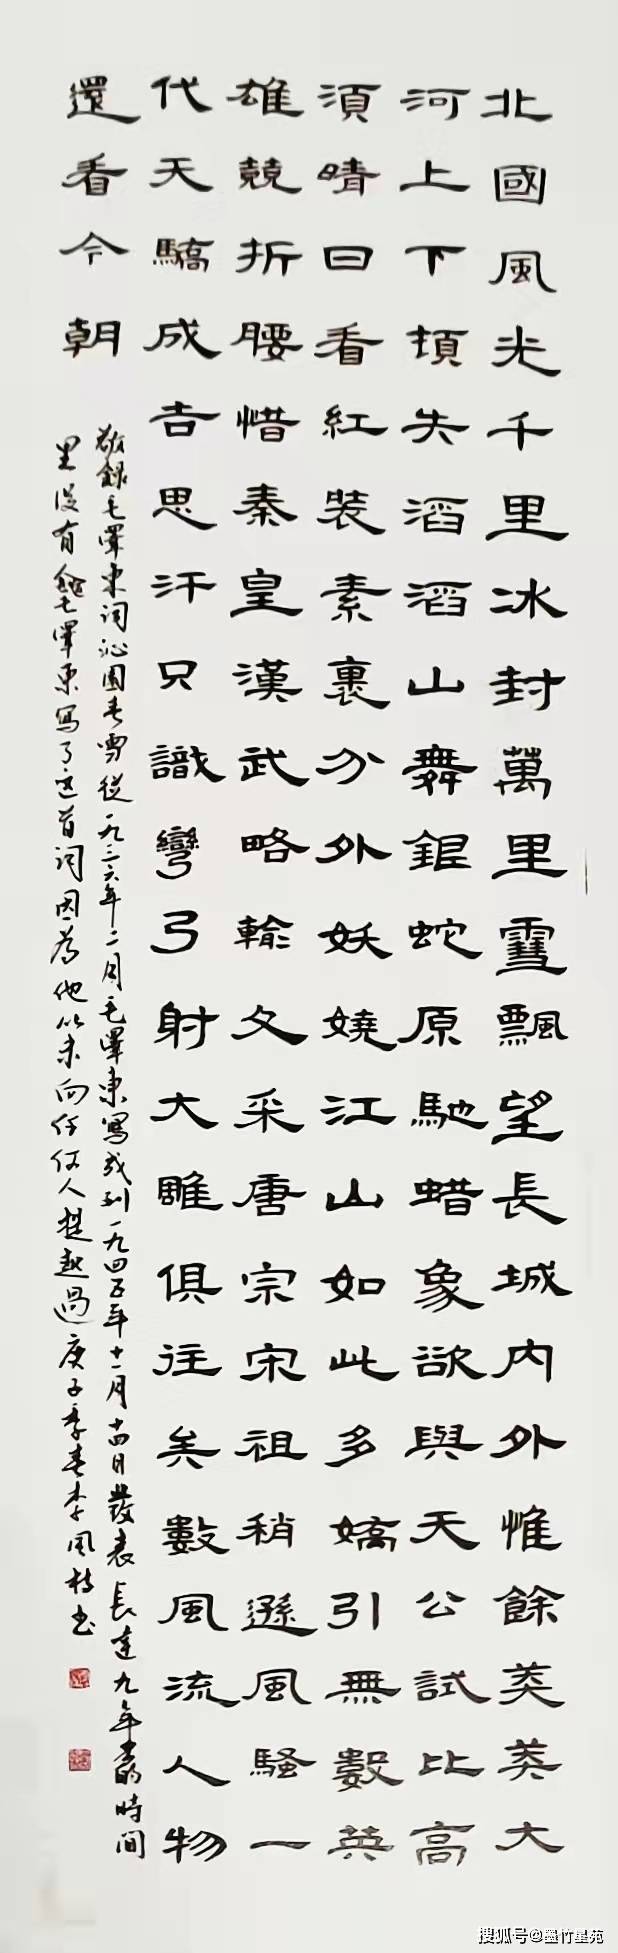 北國風光千里冰封萬里雪飄望長城内外惟餘莽莽大
河上下頓失滔滔山舞銀蛇原馳蜡象欲與天公試比高
須晴日看紅裝素裹分外妖嬈江山如此多嬌引無數英
雄競折腰惜秦皇漢武略輸文采唐宗宋祖稍遜風騷一
代天驕成吉思汗只識彎弓射大雕俱往矣數風流人物
還看今朝
敬録毛澤東词沁園春雪從一九三六年二月毛澤東寫成到一九四五年十一月十四日發表長達九年多的時間
里没有人知毛澤東寫了这首词因為他从未向任何人提起過庚子季春李风枝书
搜狐号@墨竹星苑